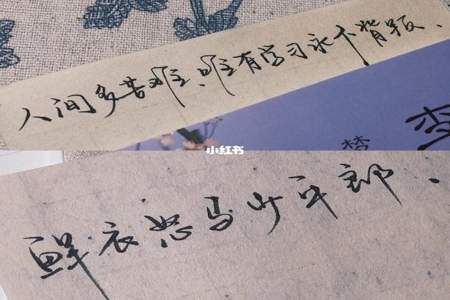 人间多苦难、唯有学习永不背叛、
小红书
鲜衣怒马少年郎、